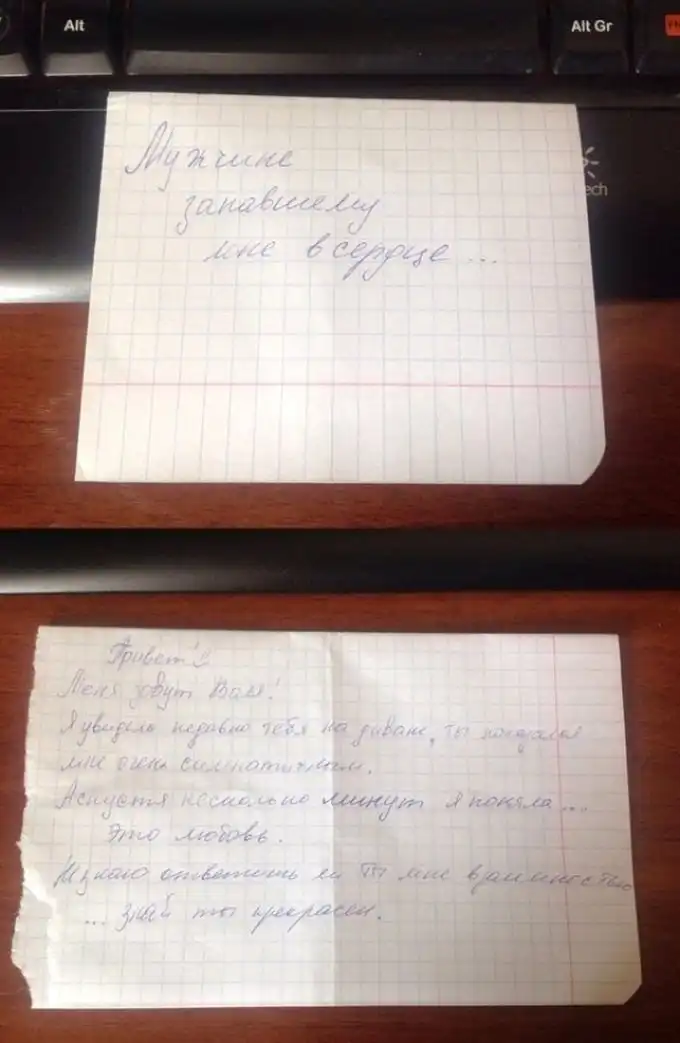 Alt
Alt Gr
Мужчине
запавшему
tech
мне в сердце ...
Привет!
Меня зовут Валя!
Я увидела недавно тебя на диване, ты показался
мне очень симпатичным.
А спустя несколько минут я поняла ...
Это любовь.
Не знаю ответишь ли ты мне взаимностью
... знай ты прекрасен.